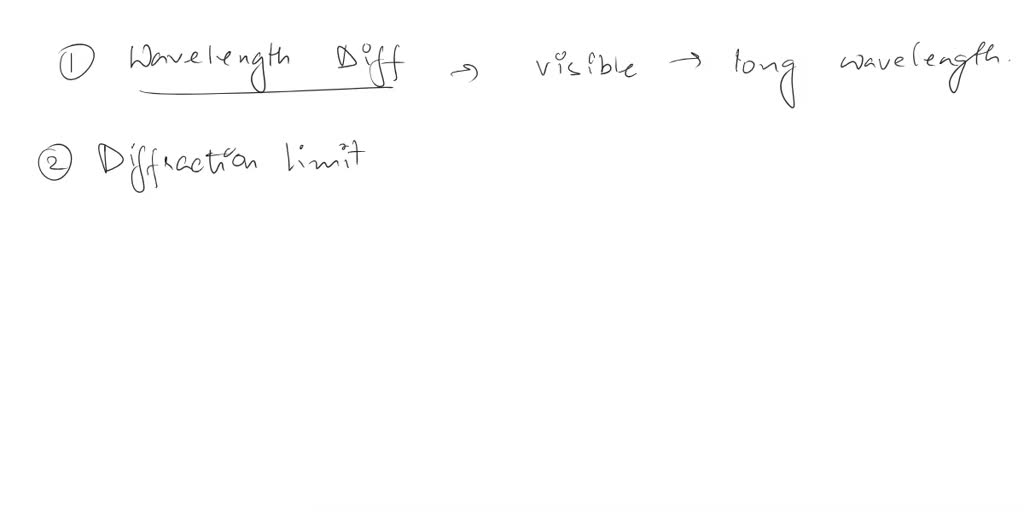 ① Wavelength Diff → visible → long wavelength.
② Diffraction limit